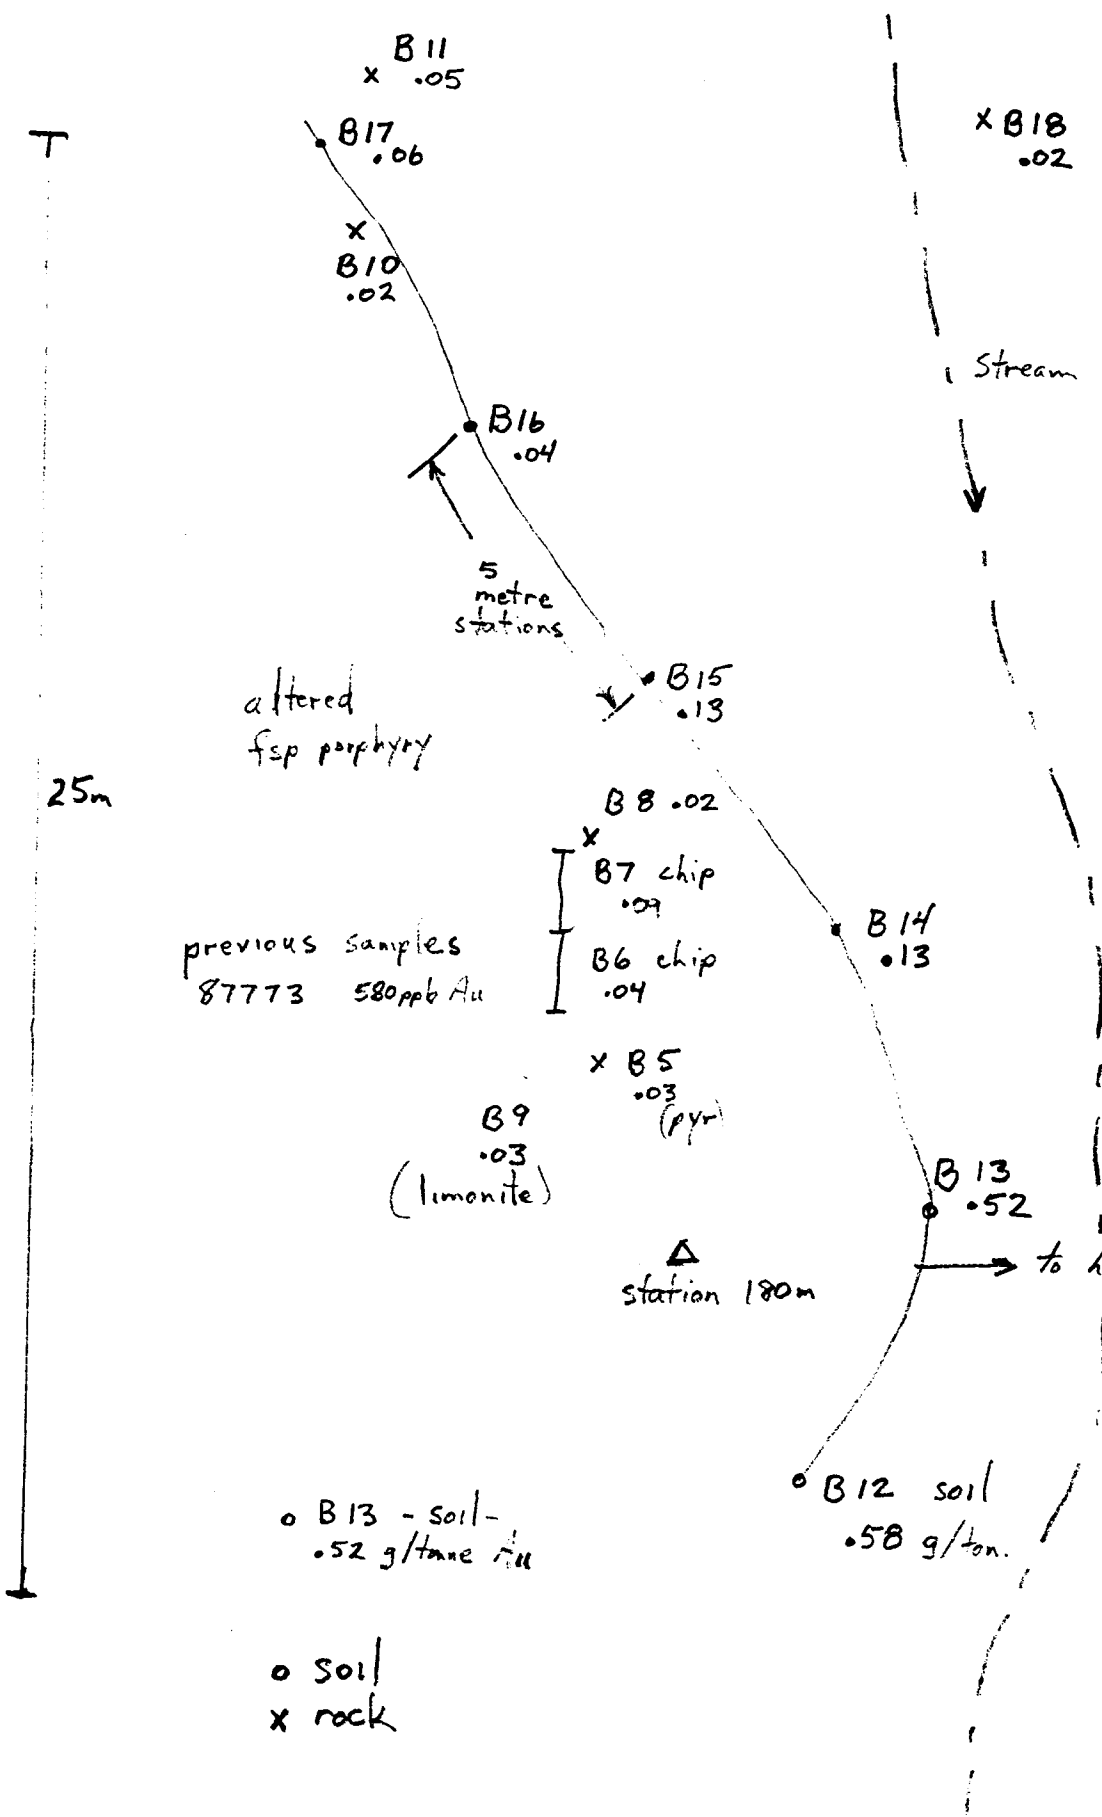 B 11
.05
B17
.06
x B18
.02
B10
.02
Stream
B16
.04
5
metre
stations
B15
.13
altered
fsp porphyry
25m
B 8 .02
B7 chip
.09
B 14
.13
previous samples
87773 580ppb Au
B6 chip
.04
x B 5
.03
(pyr)
B9
.03
(limonite)
B 13
.52
to
station 180m
B 12 soil
.58 g/ton.
B 13 - soil -
.52 g/tonne Au
o soil
x rock